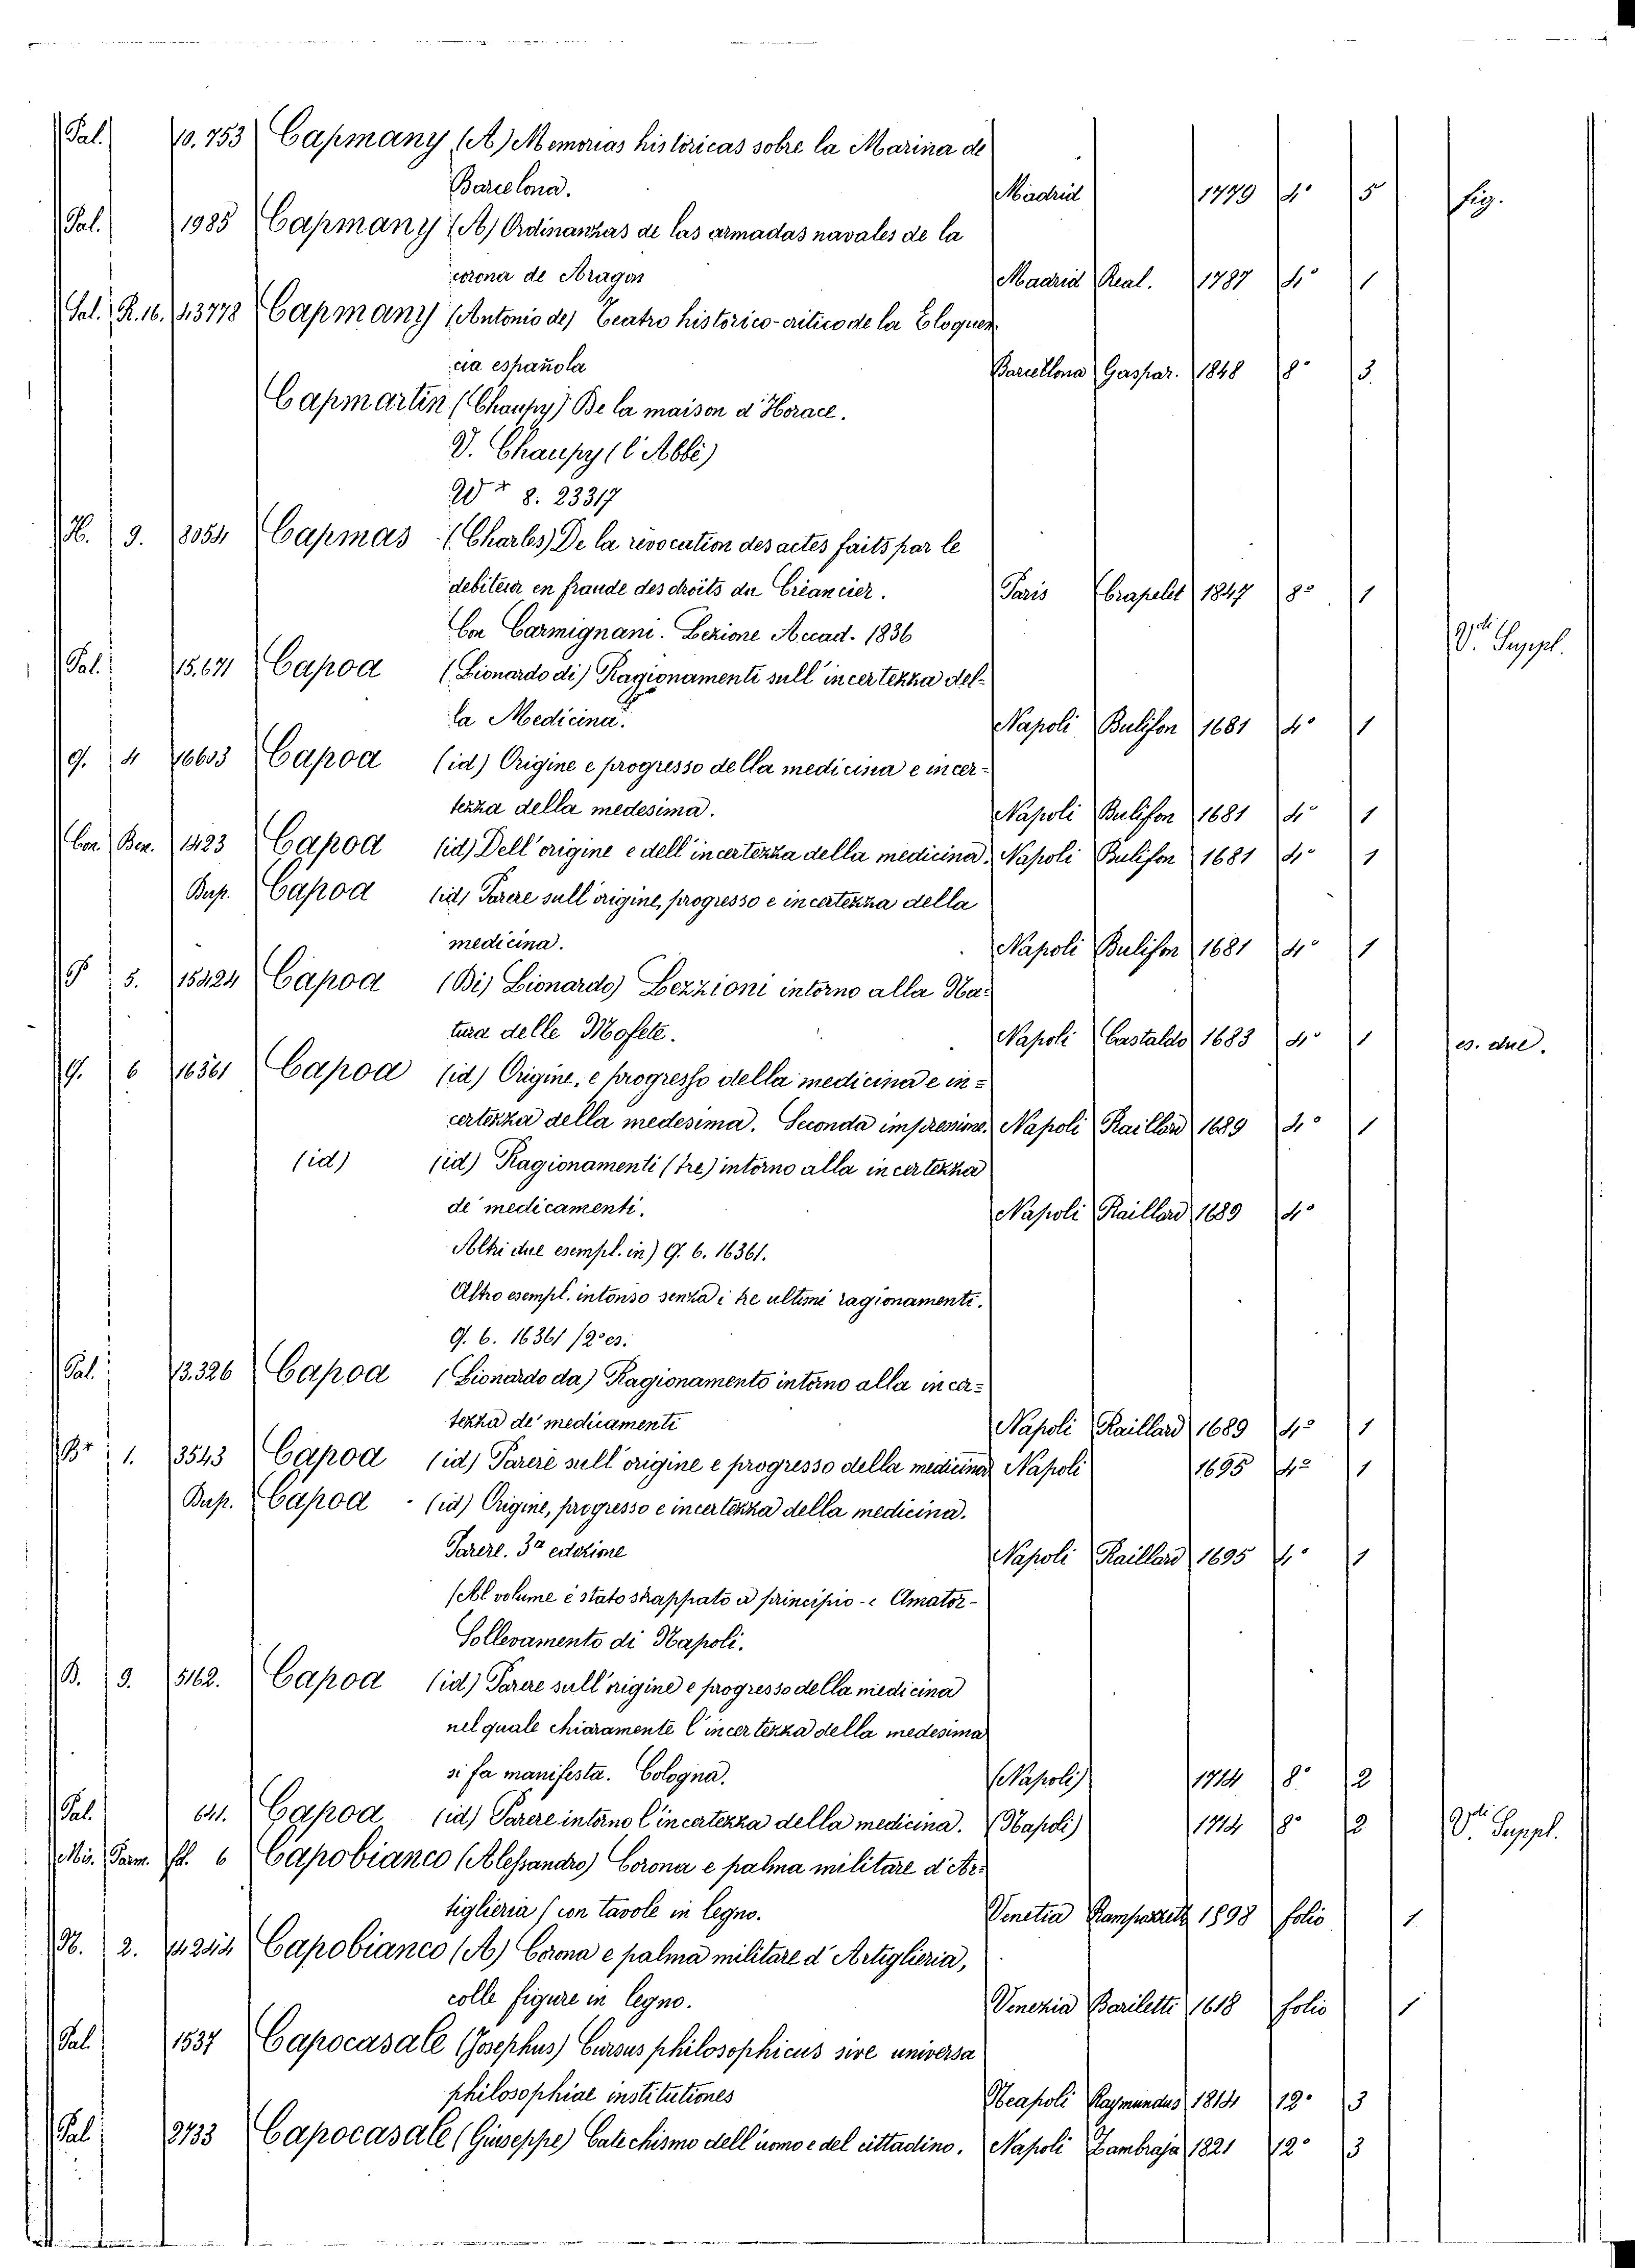 Pal. 10.753 Capmany (A) Memorias históricas sobre la Marina de
Barcelona. Madrid 1779 4° 5 fig.
Pal. 1985 Capmany (A) Ordinanzas de las armadas navales de la
corona de Aragon Madrid Real. 1787 4° 1
Sal. R.16. 13778 Capmany (Antonio de) Teatro historico-critico de la Eloquen
cia española Barcellona Gaspar. 1848 8° 3.
Capmartin (Chaupy) De la maison d'Horace.
V. Chaupy (l'Abbé)
8. 23317
H. 9. 8054 Capmas (Charles) De la révocation des actes faits par le
debiteur en fraude des droits du Créancier. Paris Crapelet 1847 8° 1
Con Carmignani. Lezione Accad. 1836
Pal. 15.671 Capoa (Lionardo di) Ragionamenti sull'incertezza del- Vdi Suppl.
la Medicina. Napoli Bulifon 1681 4° 1
G. 4 16603 Capoa (id) Origine e progresso della medicina e incer-
tezza della medesima. Napoli Bulifon 1681 4° 1
Con. Ben. 1423 Capoa (id) Dell'origine e dell'incertezza della medicina. Napoli Bulifon 1681 4° 1
Bup. Capoa (id) Parere sull'origine, progresso e incertezza della
medicina. Napoli Bulifon 1681 4° 1
5. 15424 Capoa (Di) Lionardo) Lezzioni intorno alla Na-
tura delle Mofete. Napoli Castaldo 1683 4° 1 es. due.
G. 6 16361 Capoa (id) Origine, e progresso della medicina e in=
certezza della medesima. Seconda impressione. Napoli Raillard 1689 4° 1
(id) (id) Ragionamenti (tre) intorno alla incertezza
de' medicamenti. Napoli Raillard 1689 4°
Altri due esempl. in) G. 6. 16361.
Altro esempl. intonso senza i tre ultimi ragionamenti.
G. 6. 16361 /2° es.
Pal. 13.326 Capoa (Lionardo da) Ragionamento intorno alla incer=
tezza de' medicamenti Napoli Raillard 1689 4° 1
Br 1. 3543 Capoa (id) Parere sull'origine e progresso della medicina Napoli 1695 4° 1
Bup. Capoa - (id) Origine, progresso e incertezza della medicina.
Parere. 3a edizione Napoli Raillard 1695 4° 1
(Al volume è stato strappato a principio - Amator-
Sollevamento di Napoli.
B. 9. 5162. Capoa (id) Parere sull'origine e progresso della medicina
nel quale chiaramente l'incertezza della medesima
si fa manifesta. Cologna. (Napoli) 1714 8° 2
Pal. 641. Capoa (id) Parere intorno l'incertezza della medicina. (Napoli) 1714 8° 2 Vdi Suppl.
Mis. Parm. fol. 6 Capobianco (Alessandro) Corona e palma militare d'Ar-
tiglieria (con tavole in legno. Venetia 1598 folio 1
N. 2. 14244 Capobianco (A) Corona e palma militare d'Artiglieria,
colle figure in legno. Venezia Bariletti 1618 folio 1
Pal. 1537 Capocasale (Josephus) Cursus philosophicus sive universa
philosophiae institutiones Neapoli Raymundus 1814 12° 3
Pal. 2733 Capocasale (Giuseppe) Catechismo dell'uomo e del cittadino. Napoli Zambraja 1821 12° 3